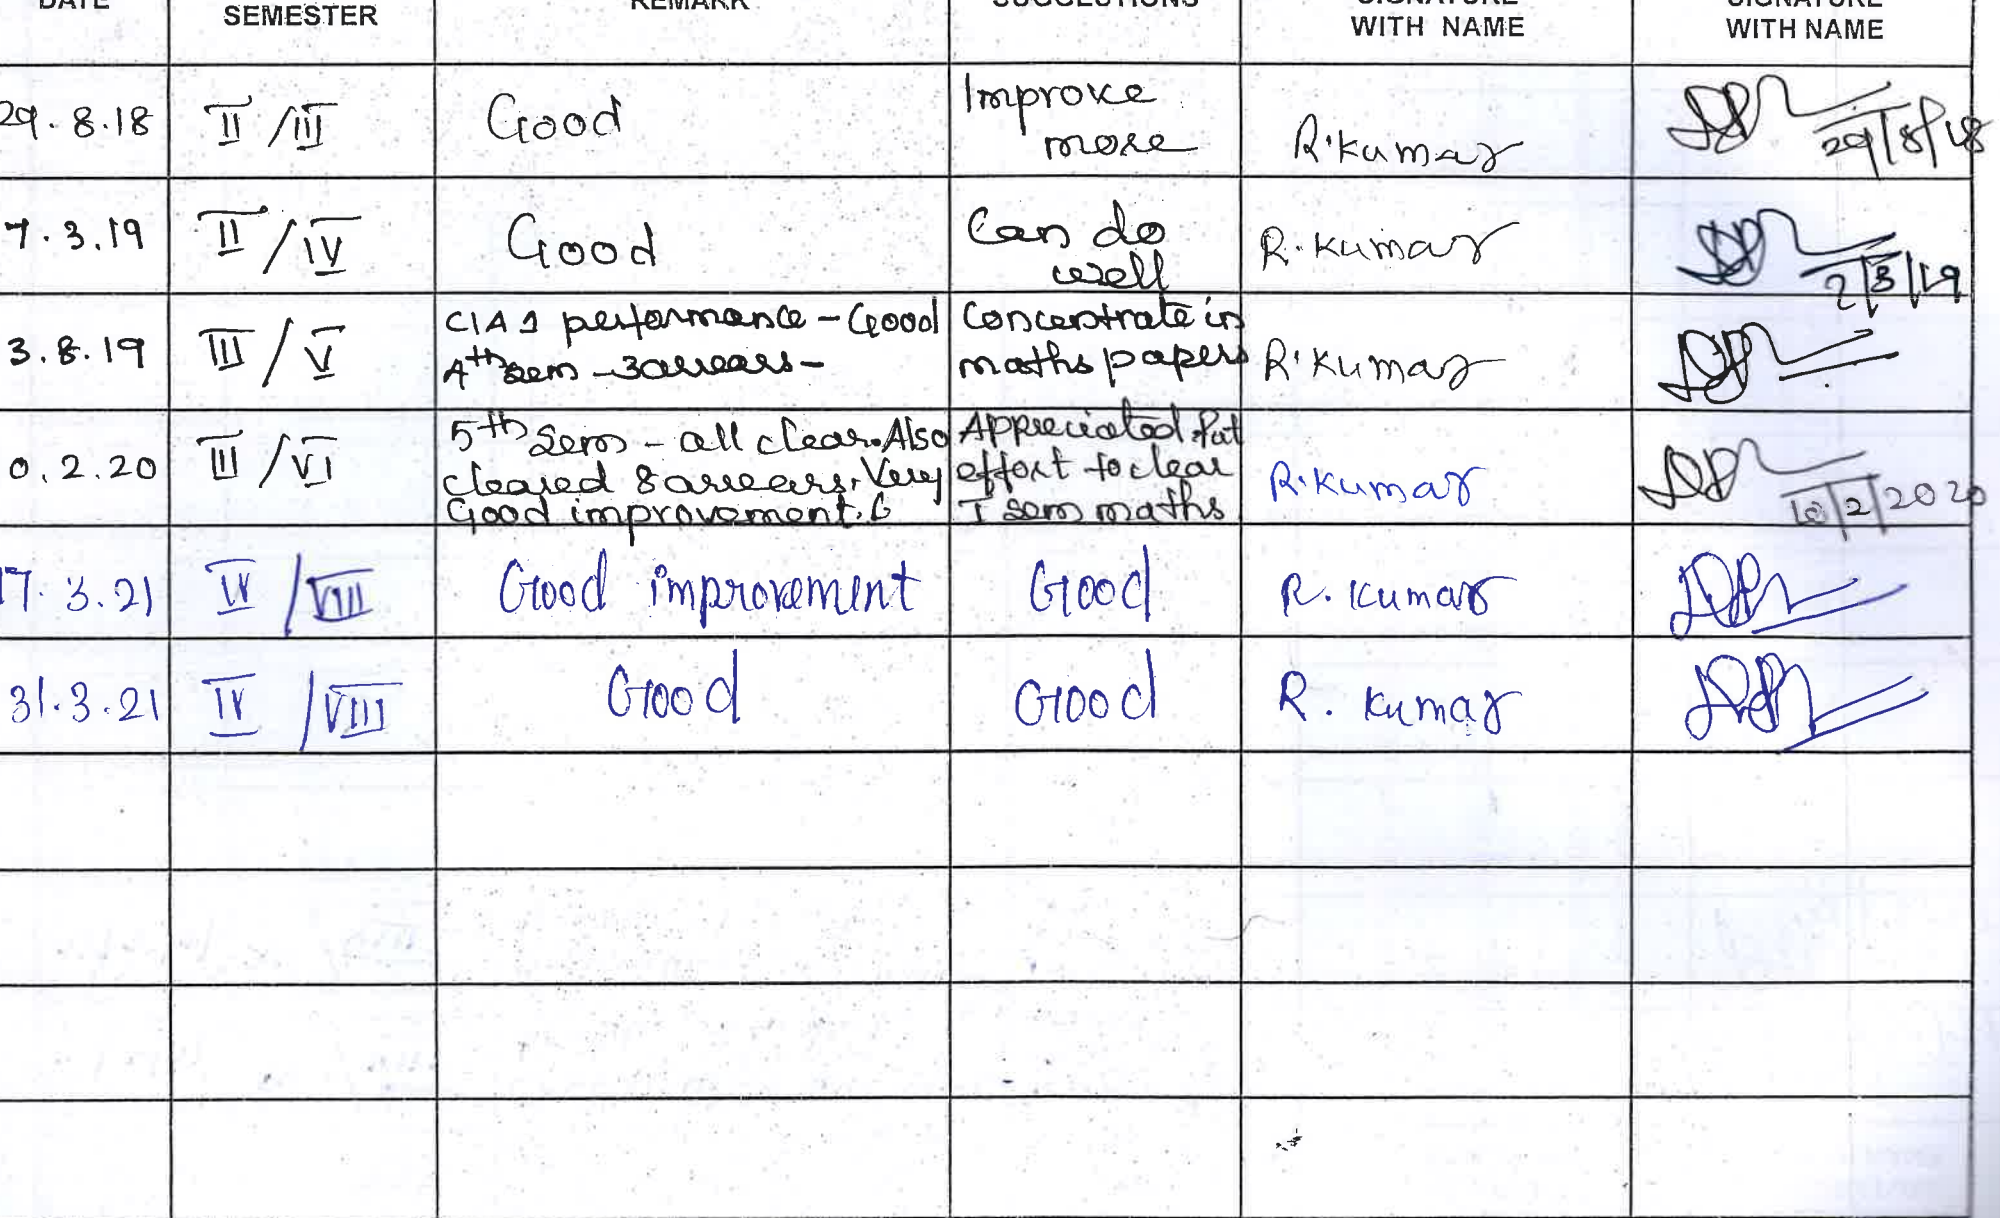 DATE SEMESTER REMARK SUGGESTIONS SIGNATURE WITH NAME SIGNATURE WITH NAME
29.8.18 II/III Good Improve more R.Kumar 29/8/18
7.3.19 II/IV Good Can do well R.Kumar 3/19
3.8.19 III/V CIA 1 performance - Good
4th sem - 3 arrears - Concentrate in
maths papers R.Kumar
0.2.20 III/VI 5th Sem - all clear. Also
cleared 8 arrears. Very
Good improvement. Appreciated. Put
effort to clear
I sem maths R.Kumar 10/2/2020
17.3.21 IV/VIII Good improvement Good R. Kumar
31.3.21 IV/VIII Good Good R. Kumar